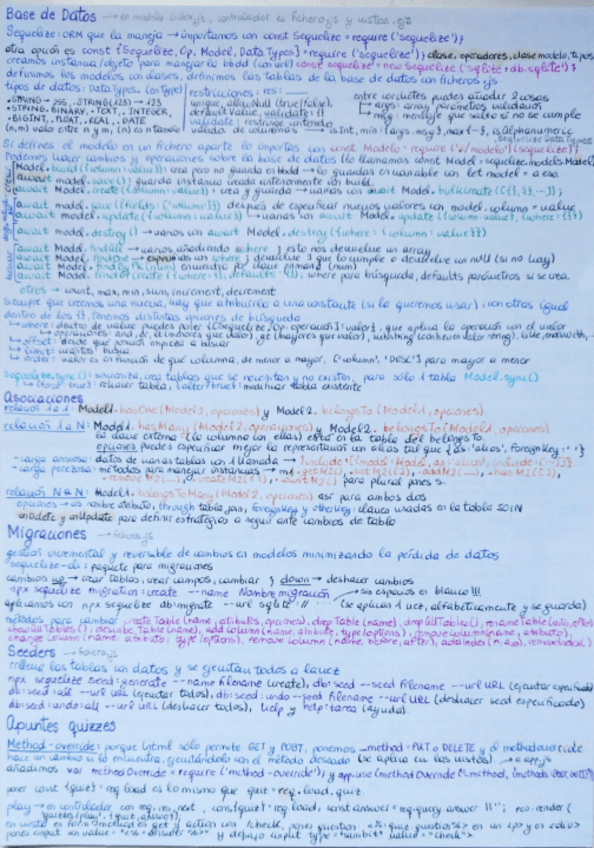 Base de Datos → en models index.js, controlador es fichero.js y vistas .ejs
Sequelize: ORM que la maneja → importamos con const Sequelize = require('sequelize');
otra opción es const {Sequelize, Op, Model, DataTypes} = require('sequelize'); clase, operadores, clase modelo, tipos
creamos instancia/objeto para manejar la bbdd (con url) const sequelize = new Sequelize('sqlite:db.sqlite');
definimos los modelos con clases, definimos las tablas de la base de datos con ficheros.js
tipos de datos: DataTypes. (en type)
• STRING → 255, STRING(123) → 123
• STRING.BINARY, TEXT, INTEGER,
• BIGINT, FLOAT, REAL,
(n,m) valor entre n y m, (n) es n tamaño
restricciones: res:
unique, allowNull (true/false),
defaultValue, validate:{}
validate: restringe contenido
valida de columnas → isInt, min:{args, msg}, max{-}, isAlphanumeric
entre corchetes puedes añadir 2 cosas
↳ args: array parámetros validación
↳ msg: mensaje que salta si no se cumple
Si defines el modelo en un fichero aparte lo importas con const Model = require('./modelo')(sequelize);
Podemos hacer cambios y operaciones sobre la base de datos (lo llamamos const Model = sequelize.models.Model)
Model.build({column: value}) crea pero no guarda en bbdd → lo guardas en variable con let model = a eso
await model.save() guarda instancia creada anteriormente con build
await Model.create({column: value}) crea y guarda → varias con await Model.bulkCreate([{},{},...]);
await model.save({fields: ['column']}) después de especificar nuevos valores con model.column = value
await model.update({column: value}) → varias con await Model.update({column: value}, {where: {}})
await model.destroy() → varios con await Model.destroy({where: {column: value}})
await Model.findAll → varios añadiendo where; esto nos devuelve un array
await Model.findOne → especificas con where; devuelve 1 que lo cumple o devuelve un null (si no hay)
await Model.findByPk(num) encuentra por clave primaria (num)
await Model.findOrCreate({where: {}, defaults: {}}), where para búsqueda, defaults parámetros si se crea
otros → count, max, min, sum, increment, decrement
Siempre que creemos una nueva, hay que atribuirlo a una constante (si la queremos usar); con otras igual
dentro de los {}, tenemos distintas opciones de búsqueda
↳ where: dentro de value puedes poner {[Sequelize.Op.operación]: valor}, que aplica la operación con el valor
↳ operaciones: and, or, lt (menores que valor), gt (mayores que valor), substring (contiene un valor string), like, endsWith,
↳ offset: desde qué posición empieza a buscar
↳ limit: cuántos busca
↳ order: valor es en función de qué columna, de menor a mayor, ['column', 'DESC'] para mayor a menor
Sequelize.sync(): sincroniza, crea tablas que se necesitan y no existen, para sólo 1 tabla Model.sync()
↳ {force: true}: rehacer tabla, {alter: true}: modificar tabla existente
Asociaciones
relación 1 a 1: Model1.hasOne(Model2, opciones) y Model2.belongsTo(Model1, opciones).
relación 1 a N: Model1.hasMany(Model2, operaciones) y Model2.belongsTo(Model1, opciones)
la clave externa (la columna con ellas) está en la tabla del belongsTo.
opciones puedes especificar mejor la representación con alias tal que {as: 'alias', foreignKey: ' '}
- carga ansiosa: datos de varias tablas con 1 llamada → include: [{model: Model, as: 'alias', include: [...]}]
- carga perezosa: métodos para manejar instancias → m1.getM2(), .setM2(), .addM2(...), .hasM2(),
.removeM2(...), .createM2(), .countM2() para plural pones s.
relación N a N: Model1.belongsToMany(Model2, opciones) así para ambos dos
opciones → as nombre atributo, through tabla join, foreignkey y otherkey: claves usadas en la tabla JOIN
onDelete y onUpdate para definir estrategias a seguir ante cambios de tabla
Migraciones → fichero.js
gestión incremental y reversible de cambios en modelos minimizando la pérdida de datos
sequelize-cli: paquete para migraciones
cambios up → crear tablas, crear campos, cambiar; down → deshacer cambios
npx sequelize migration:create --name Nombre migración → sin espacios en blanco!!!
aplicamos con npx sequelize db:migrate --url sqlite:// ... (se aplican 1 vez, alfabéticamente y se guarda)
métodos para cambiar createTable(name, atributos, opciones), dropTable(name), dropAllTables(), renameTable(ant, after)
showAllTables(), describeTable(name), addColumn(name, atributo, type/options), removeColumn(name, atributo),
changeColumn(name, atributo, type/options), renameColumn(name, before, after), addIndex(n,a,o), removeIndex()
Seeders → fichero.js
rellena las tablas con datos y se ejecutan todos a la vez
npx sequelize seed:generate --name filename (create), db:seed --seed filename --url URL (ejecutar especificado)
db:seed:all --url URL (ejecutar todos), db:seed:undo --seed filename --url URL (deshacer seed especificado)
db:seed:undo:all --url URL (deshacer todos), help y help:tarea (ayuda).
Apuntes quizzes
Method-override: porque html sólo permite GET y POST, ponemos _method=PUT o DELETE y el methodoverride
hace un cambio si lo encuentra, ejecutándolo con el método deseado (se aplica en las vistas) → app.js
añadimos var methodOverride = require('method-override'); y app.use(methodOverride('_method', {methods:
poner const {quiz} = req.load es lo mismo que quiz = req.load.quiz
play → en controlador con req, res, next, const {quiz} = req.load, const answer = req.query.answer || ''; res.render(
'quizzes/play', {quiz, answer});
en vista es form method es get y action con /check, pones question <%= quiz.question %> en un <p> y en <div>
pones input con value="<%= answer %>" y debajo input type="submit" value="check">